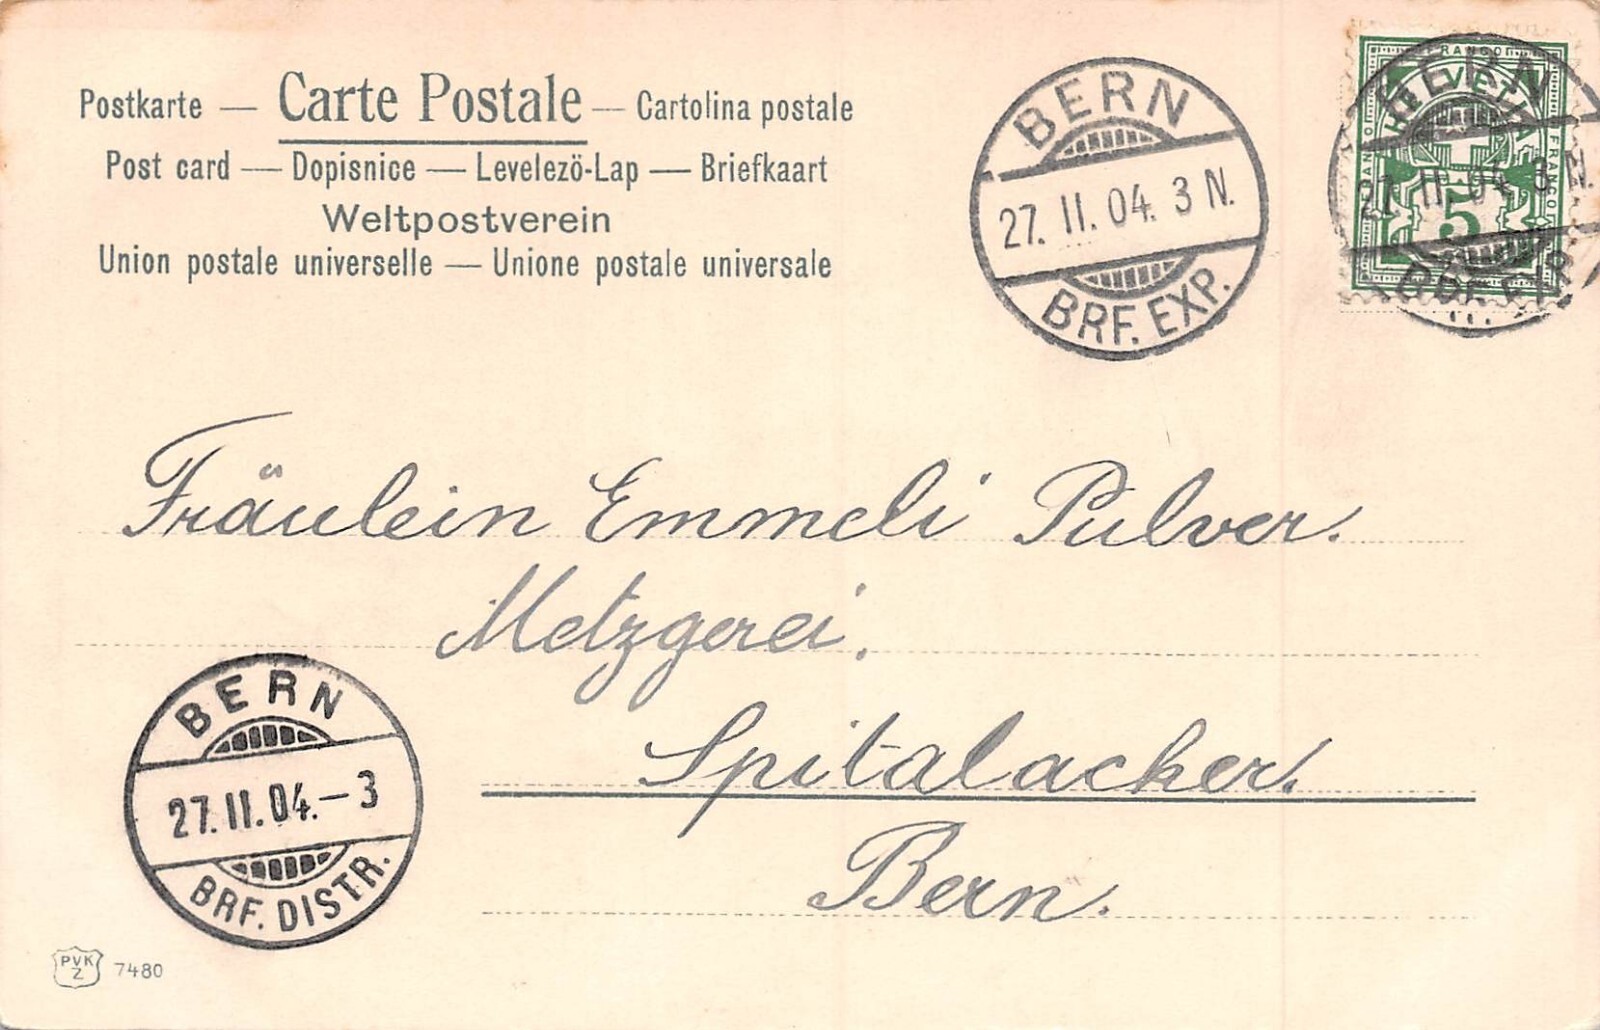 Postkarte — Carte Postale — Cartolina postale
Post card — Dopisnice — Levelezö-Lap — Briefkaart
Weltpostverein
Union postale universelle — Unione postale universale
BERN
27. II. 04. 3 N.
BRF. EXP.
FRANCO
HELVETIA
FRANCO
5
BERN
27. II. 04. 3 N.
BRF. EXP.
Fräulein Emmeli Pulver.
Metzgerei.
Spitalacker.
Bern.
BERN
27. II. 04. – 3
BRF. DISTR.
PVK
Z
7480